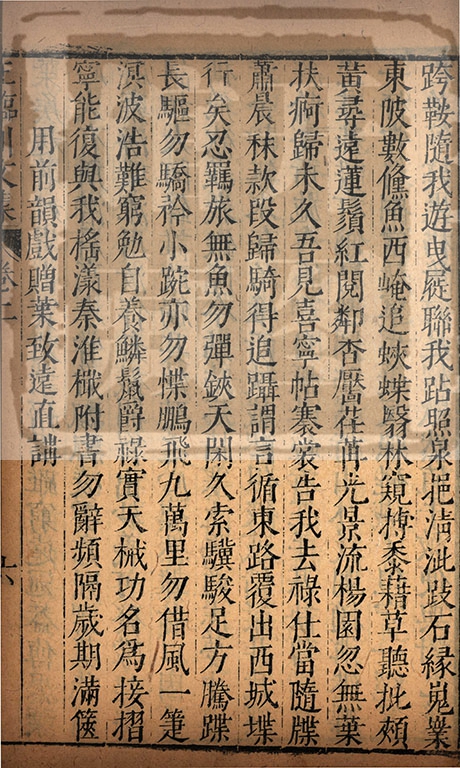 跨鞍隨我遊曳屣聯我跕照泉挹清泚跂石緣嵬嶪
東陂數鯈魚西崦追蛺蝶翳林窺摶黍藉草聽批頰
黃尋遠蓮鬚紅閱鄰杏靨荏苒光景流楊園忽無葉
扶痾歸未久吾見喜寧帖褰裳告我去祿仕當隨牒
蕭晨秣款段歸騎得追躡謂言循東路覆出西城堞
行矣忍羈旅無魚勿彈鋏天閑久索驥駿足方騰蹀
長驅勿驕矜小踠亦勿惵鵬飛九萬里勿借風一箑
溟波浩難窮勉自養鱗鬣爵祿實天械功名為接摺
寧能復與我榣漾秦淮檝附書勿辭頻隔歲期滿篋
用前韻戲贈葉致遠直講
王臨川文集 卷二